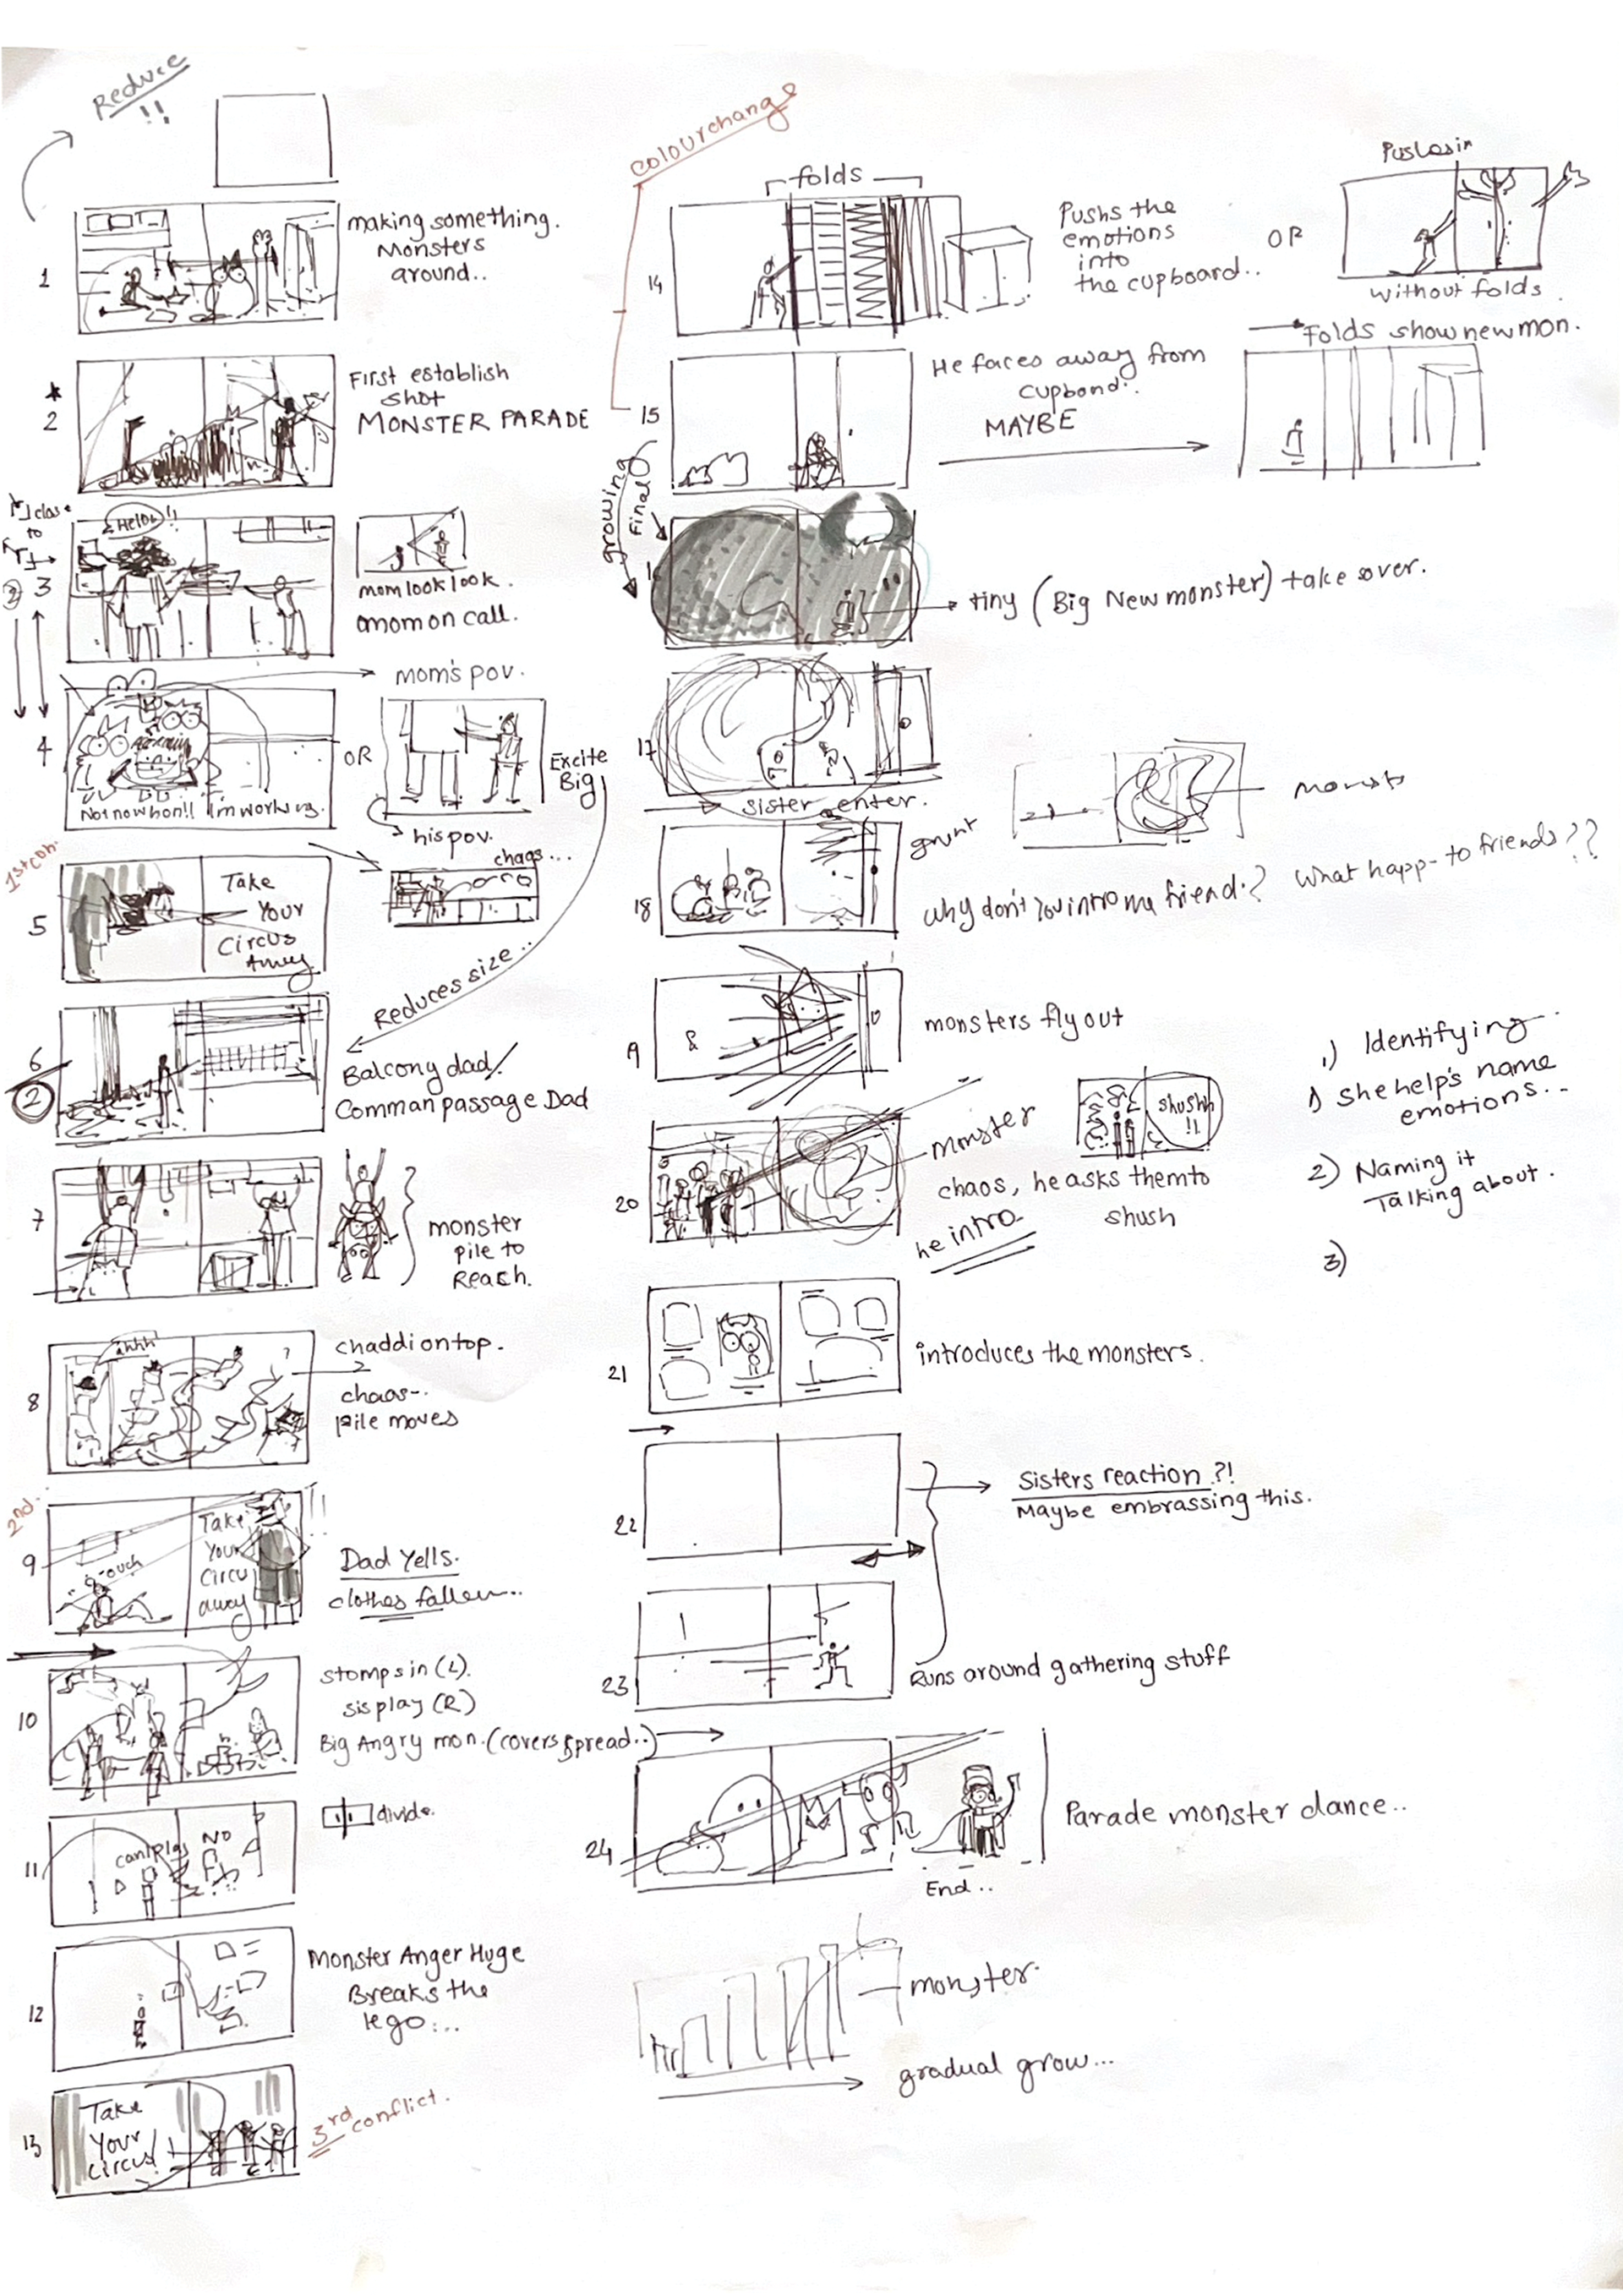 Reduce
!!
1
making something.
Monsters
around..
2
First establish
shot
MONSTER PARADE
close
to
3
Hello!!
mom look look.
mom on call.
4
mom's pov.
Not now hon!! I'm working.
OR
his pov.
Excite
Big
1st con.
5
Take
Your
Circus
Away
chaos...
Reduces size..
6
2
Balcony dad/
Comman passage Dad
7
monster
pile to
Reach.
8
ahhh
?
chaddi on top.
chaos-.
pile moves
2nd..
9
ouch
Take
Your
Circu
away
!!
Dad Yells.
clothes fallen..
10
stomps in (L).
sis play (R)
Big Angry mon. (covers spread..)
11
can I play
NO
divide.
12
Monster Anger Huge
Breaks the
lego...
13
Take
Your
Circus
3rd conflict.
colour change
folds
14
Pushs the
emotions
into
the cupboard..
OR
without folds.
15
He faces away from
cupbond..
MAYBE
Folds show new mon.
growing
Final
tiny (Big New monster) takes over.
17
sister enter.
18
grunt
Why don't you intro me friend.? What happ- to friends??
9
monsters fly out
20
monster
chaos, he asks them to
shush
he intro
shushh
!!
1) Identifying
1) she help's name
emotions...
2) Naming it
Talking about.
3)
21
introduces the monsters.
22
Sisters reaction ?!
Maybe embrassing this.
23
Runs around gathering stuff
24
Parade monster dance..
End..
monster.
gradual grow...